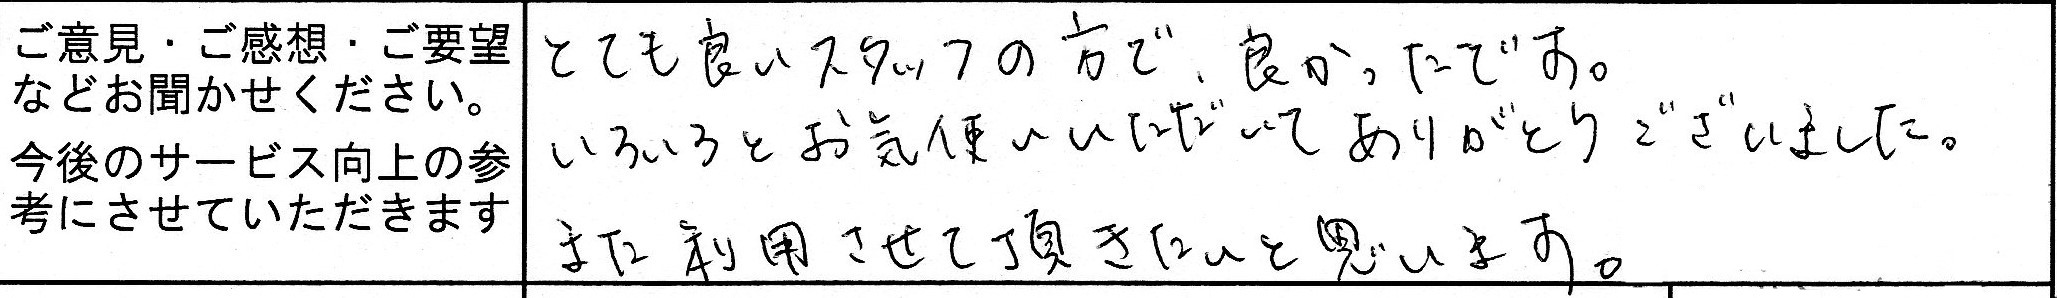 ご意見・ご感想・ご要望
などお聞かせください。
今後のサービス向上の参
考にさせていただきます
とても良いスタッフの方で、良かったです。
いろいろとお気使いいただいてありがとうございました。
また利用させて頂きたいと思います。